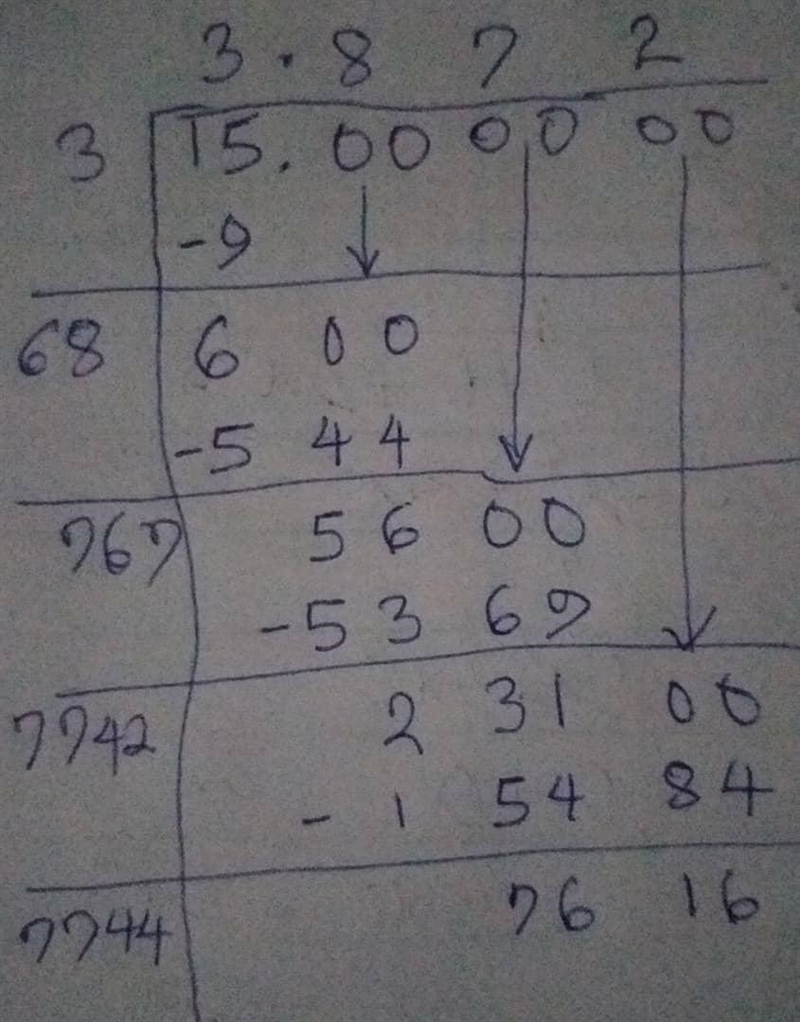 3.8 7 2
3 15.00 00 00
-9
68 6 00
-5 44
767 56 00
-53 69
7742 2 31 00
-1 54 84
7744 76 16